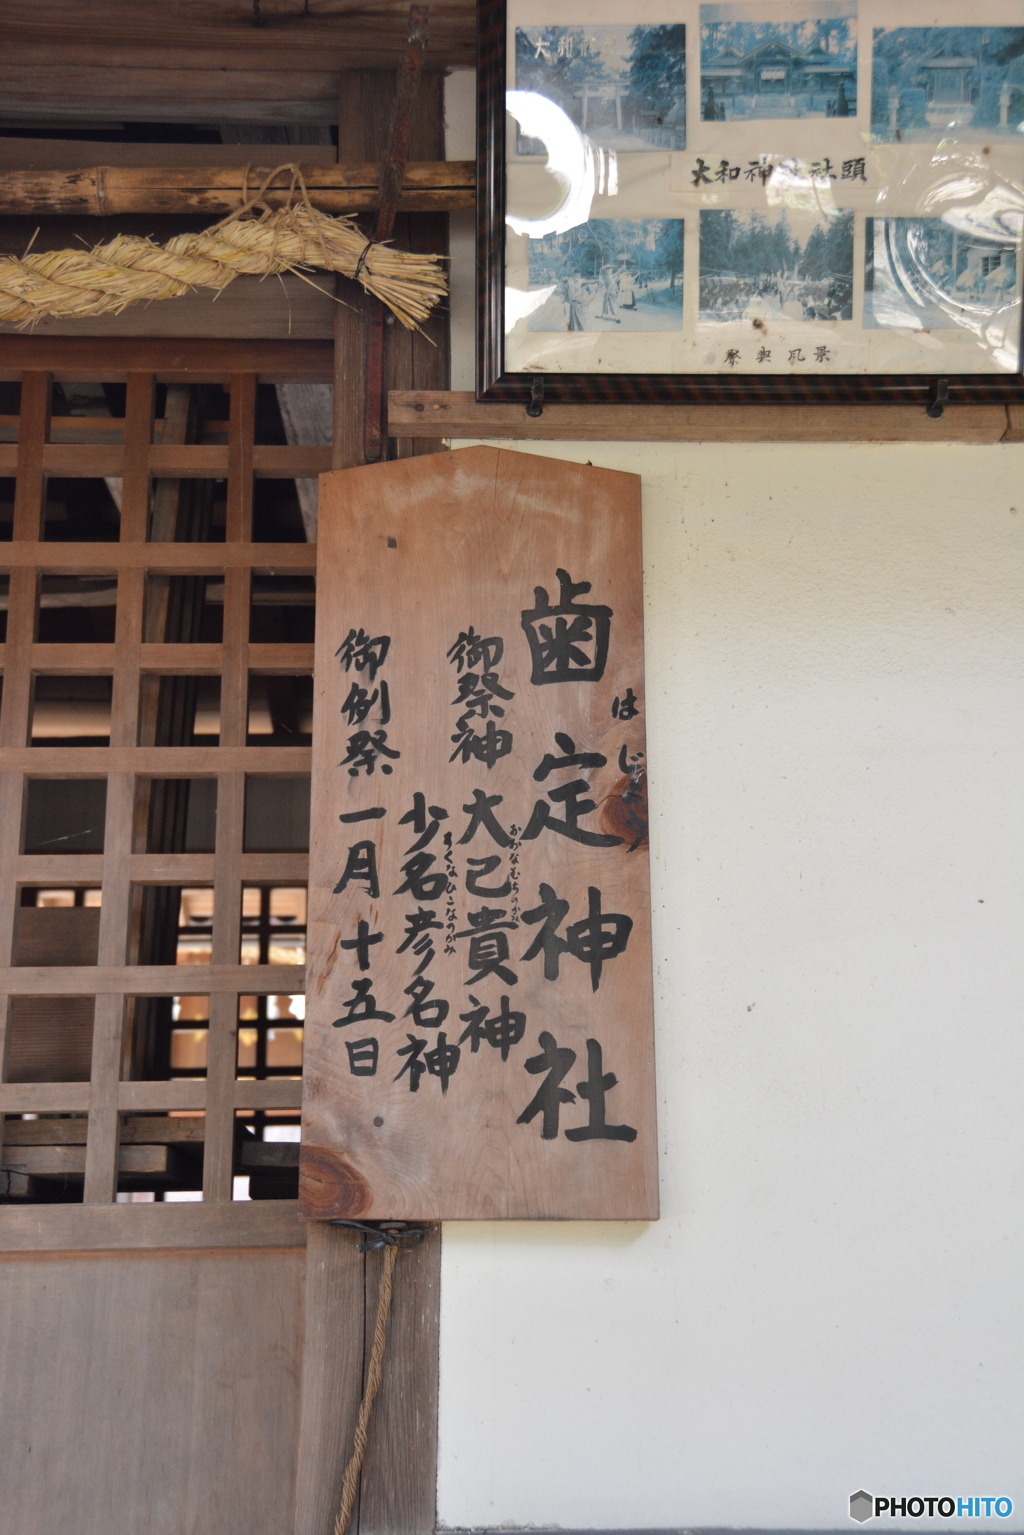 大和神社社頭
祭典風景
歯定神社
はじょう
御祭神 大己貴神
おおなむちのかみ
少名彦名神
すくなひこなのかみ
御例祭 一月十五日
PHOTOHITO